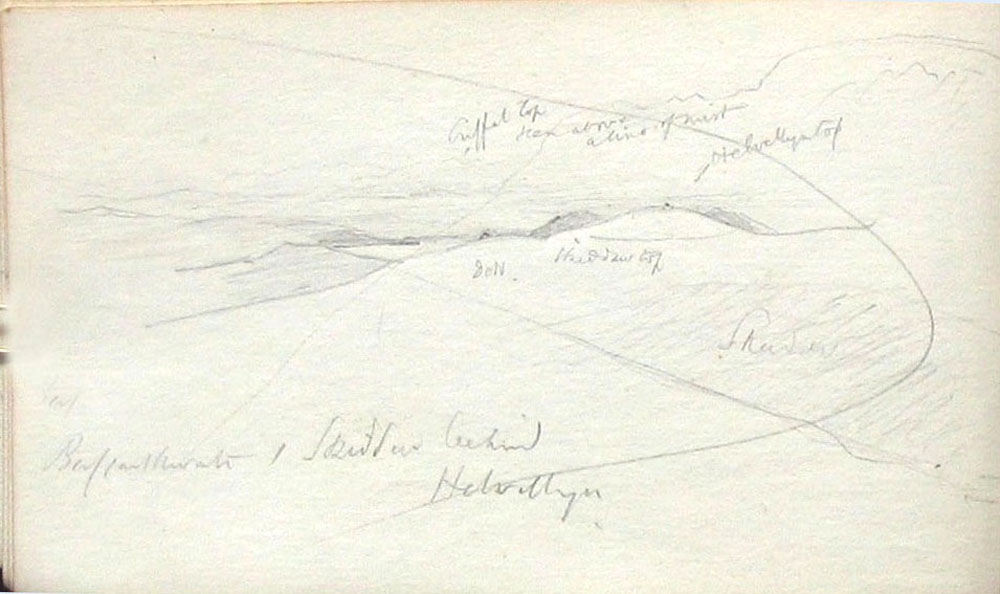 Criffel top
seen above
a line of mist
Helvellyn top
Skiddaw top
Skiddaw
Bassenthwaite & Skiddaw behind
Helvellyn